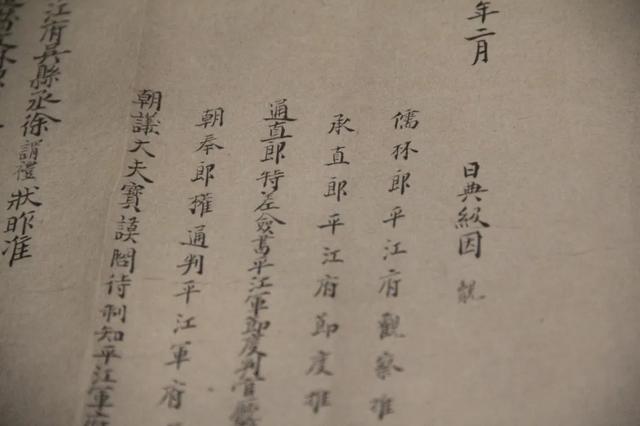 年二月
日典級因
儒林郎平江府觀察推
承直郎平江府節度推
通直郎特差僉書平江軍節度判官廳
朝奉郎權通判平江軍府
朝議大夫寶謨閣待制知平江軍府
江府吳縣丞徐謂禮狀昨准